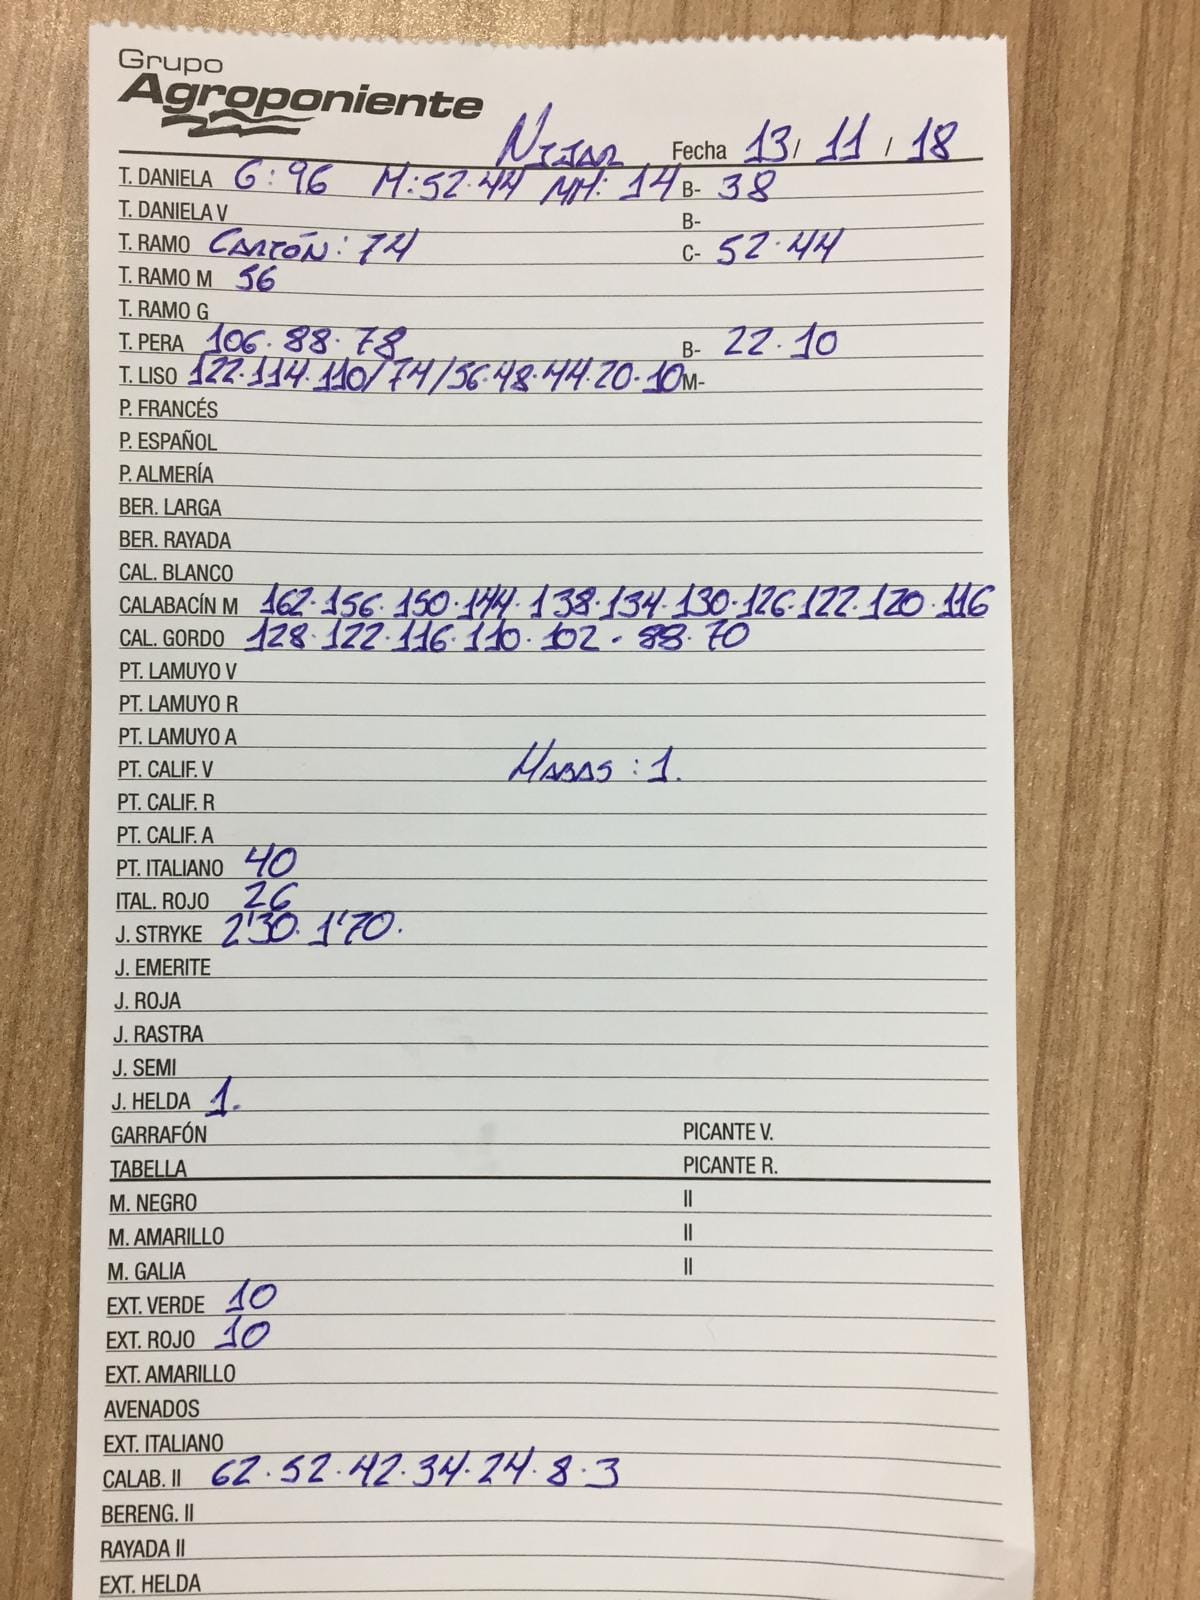 Grupo
Agroponiente
Nijar Fecha 13/ 11 / 18
T. DANIELA G: 96 M: 52·44 MM: 14 B- 38
T. DANIELA V B-
T. RAMO Cartón: 74 C- 52·44
T. RAMO M 56
T. RAMO G
T. PERA 106·88·78 B- 22·10
T. LISO 122·114·110/74/56·48·44·20·10 M-
P. FRANCÉS
P. ESPAÑOL
P. ALMERÍA
BER. LARGA
BER. RAYADA
CAL. BLANCO
CALABACÍN M 162·156·150·144·138·134·130·126·122·120·116
CAL. GORDO 128·122·116·110·102·88·70
PT. LAMUYO V
PT. LAMUYO R
PT. LAMUYO A
PT. CALIF. V Habas: 1.
PT. CALIF. R
PT. CALIF. A
PT. ITALIANO 40
ITAL. ROJO 26
J. STRYKE 2'30· 1'70·
J. EMERITE
J. ROJA
J. RASTRA
J. SEMI
J. HELDA 1.
GARRAFÓN PICANTE V.
TABELLA PICANTE R.
M. NEGRO II
M. AMARILLO II
M. GALIA II
EXT. VERDE 10
EXT. ROJO 10
EXT. AMARILLO
AVENADOS
EXT. ITALIANO
CALAB. II 62·52·42·34·24·8·3
BERENG. II
RAYADA II
EXT. HELDA